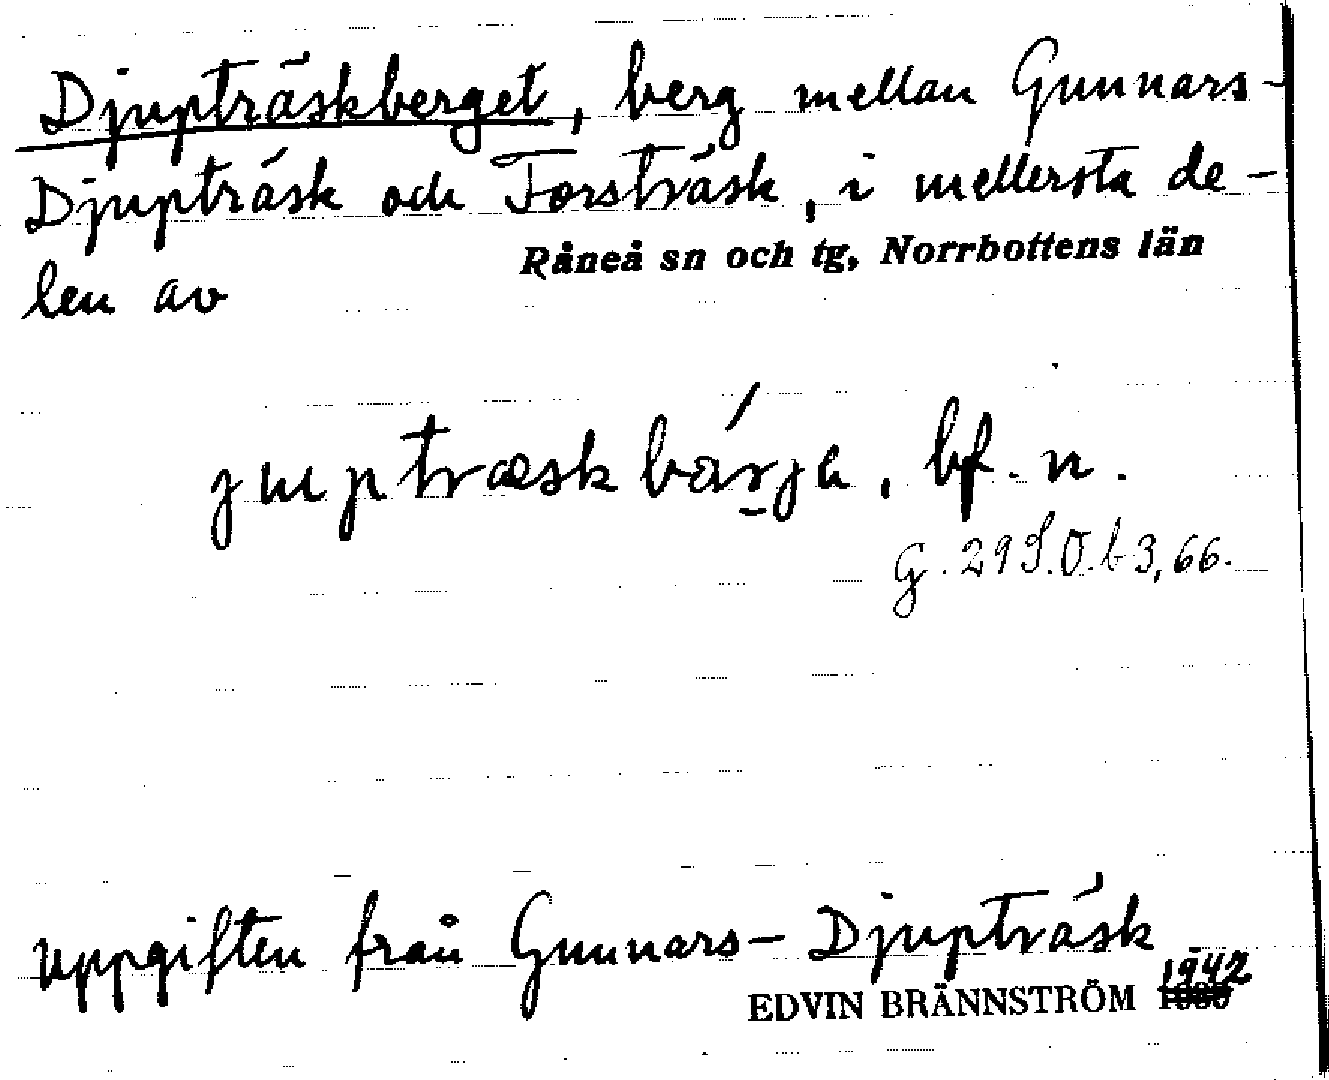 Djupträskberget, berg mellan Gunnars-
Djupträsk och Forsträsk, i mellersta de-
len av
Råneå sn och tg, Norrbottens län
bf. n.
G. 29 S.O. b 3, 66.
uppgiften från Gunnars-Djupträsk
EDVIN BRÄNNSTRÖM 1942